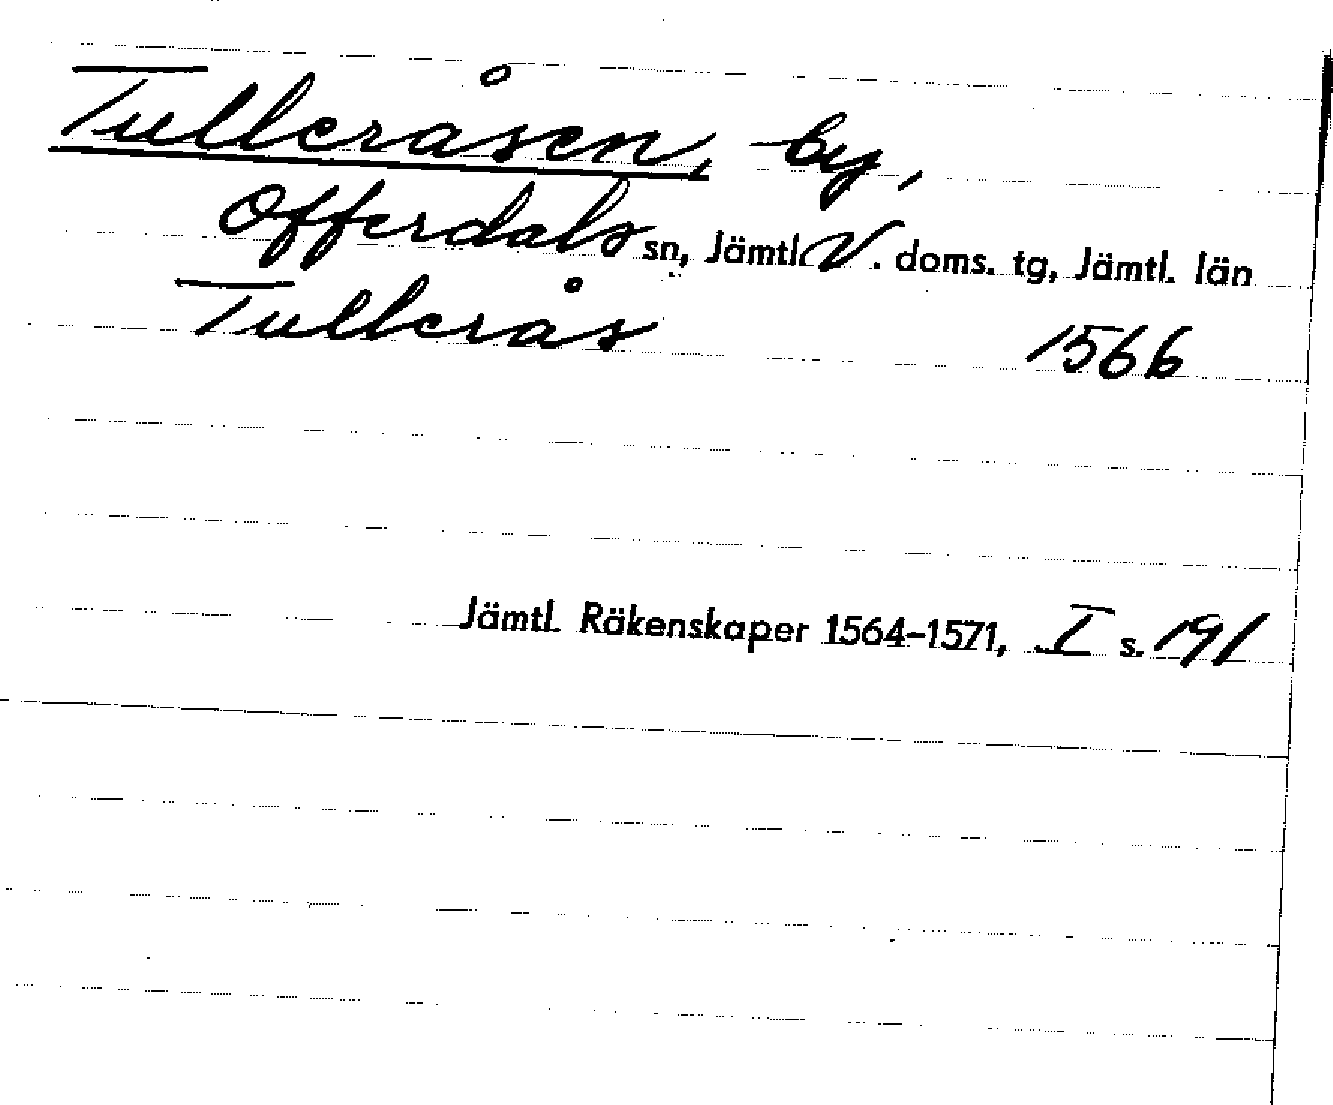 Tulleråsen, by,
Offerdals sn, Jämtl. V. doms. tg, Jämtl. län
Tullerås 1566
Jämtl. Räkenskaper 1564-1571, I s. 191